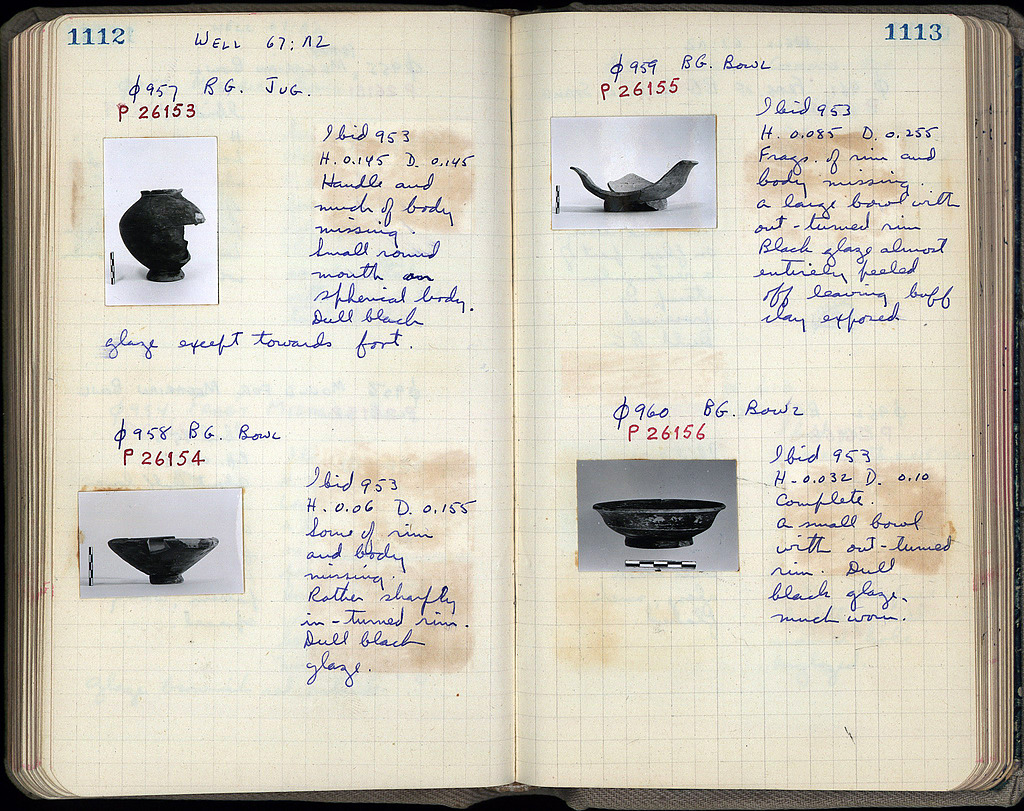 1112
WELL 67; Π2
φ957 B.G. JUG.
P 26153
Ibid 953
H. 0.145 D. 0.145
Handle and
much of body
missing.
Small round
mouth on
spherical body.
Dull black
glaze except towards foot.
φ958 BG. BOWL
P 26154
Ibid 953
H. 0.06 D. 0.155
Some of rim
and body
missing.
Rather sharply
in-turned rim.
Dull black
glaze.
1113
φ959 BG. BOWL
P 26155
Ibid 953
H. 0.085 D. 0.255
Frags. of rim and
body missing.
a large bowl with
out-turned rim
Black glaze almost
entirely peeled
off leaving buff
clay exposed
φ960 BG. BOWL
P 26156
Ibid 953
H. 0.032 D. 0.10
Complete.
a small bowl
with out-turned
rim. Dull
black glaze.
much worn.